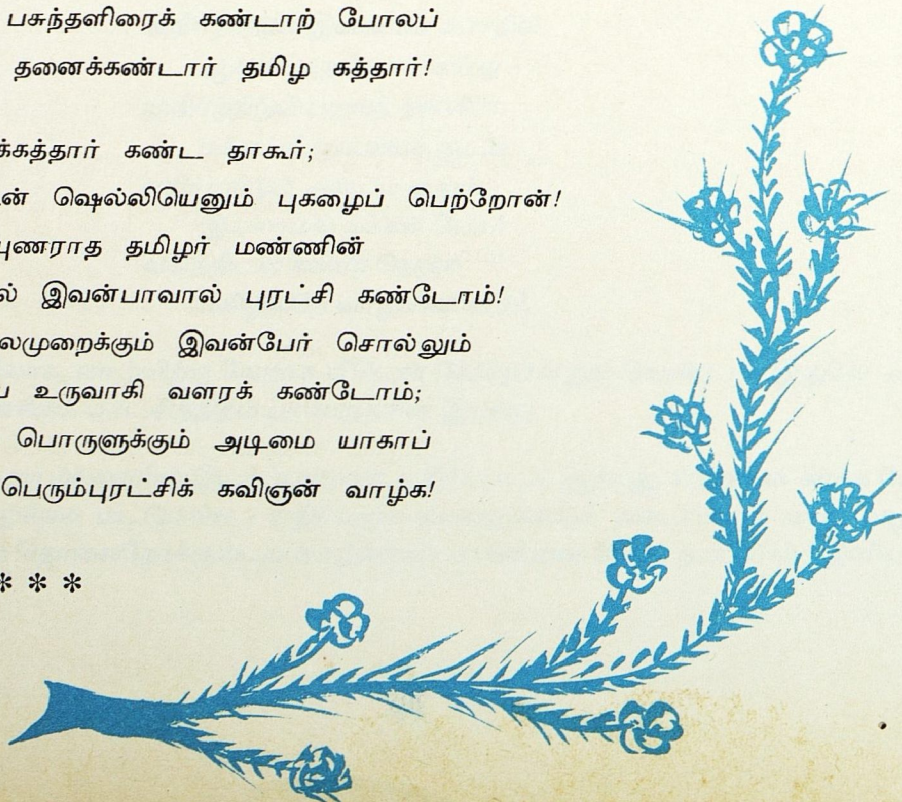 பசுந்தளிரைக் கண்டாற் போலப்
தனைக்கண்டார் தமிழ கத்தார்!
கண்ட தாகூர்;
ஷெல்லியெனும் புகழைப் பெற்றோன்!
தமிழர் மண்ணின்
இவன்பாவால் புரட்சி கண்டோம்!
இவன்பேர் சொல்லும்
உருவாகி வளரக் கண்டோம்;
பொருளுக்கும் அடிமை யாகாப்
பெரும்புரட்சிக் கவிஞன் வாழ்க!
* * *